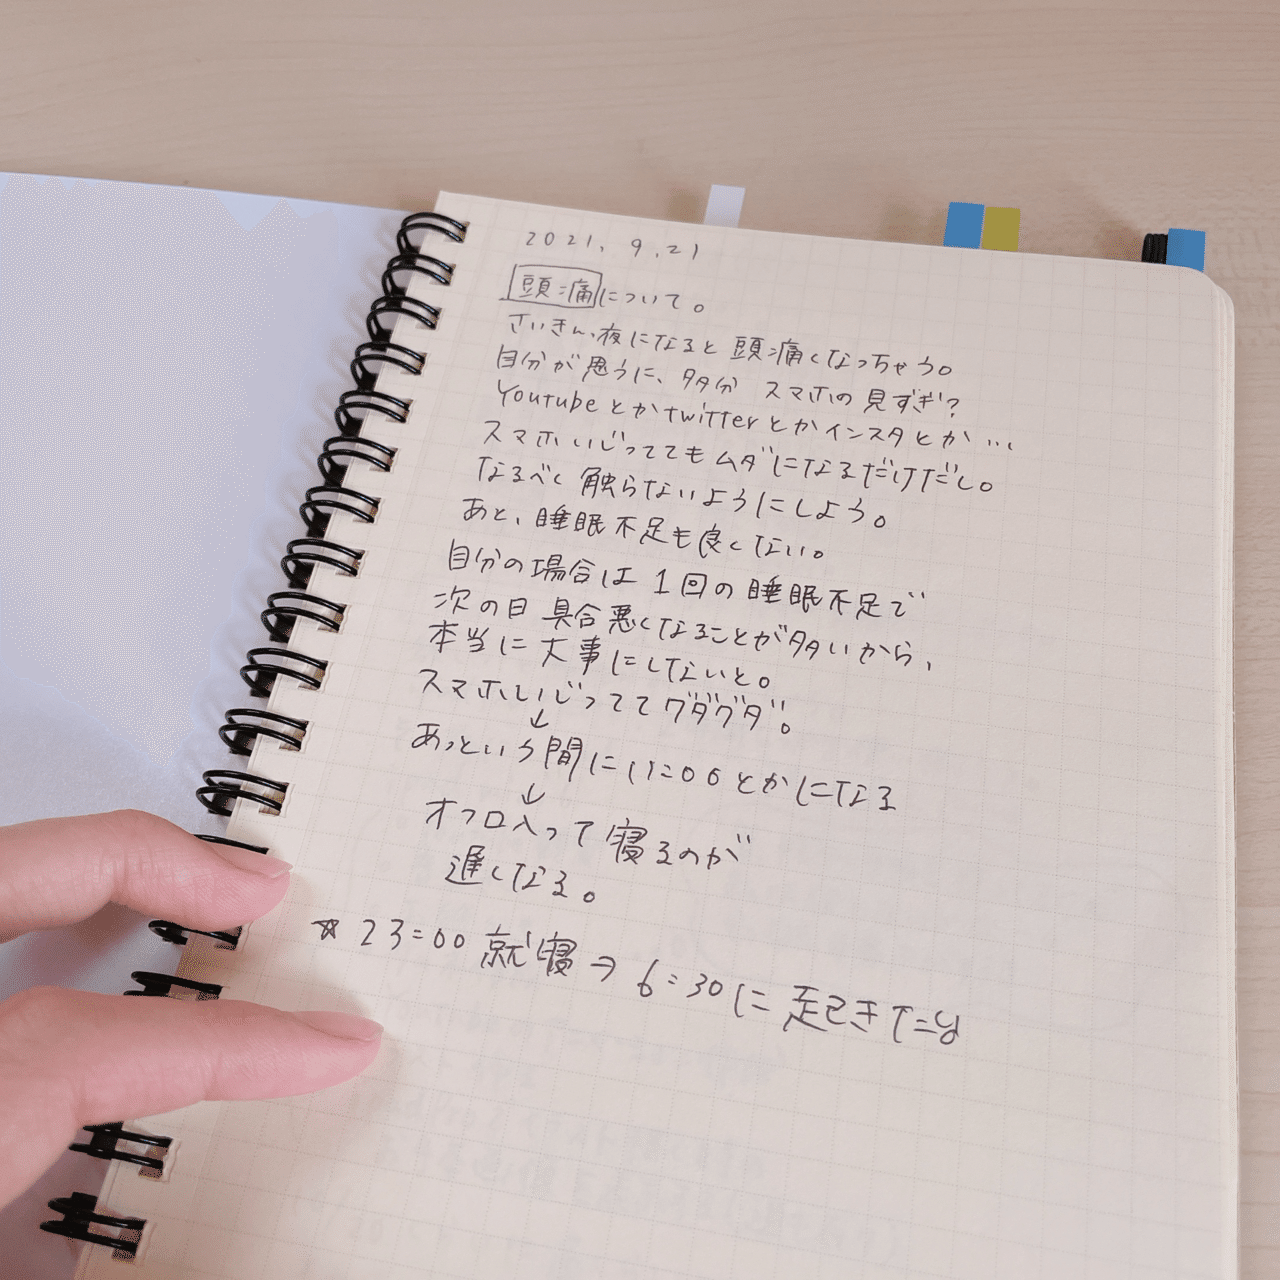 2021.9.21
頭痛について。
さいきん、夜になると頭痛くなっちゃう。
自分が思うに、多分 スマホの見すぎ?
Youtubeとかtwitterとかインスタとか…
スマホいじっててもムダになるだけだし。
なるべく触らないようにしよう。
あと、睡眠不足も良くない。
自分の場合は1回の睡眠不足で
次の日 具合悪くなることが多いから、
本当に大事にしないと。
スマホいじっててグダグダ。
↓
あっという間に11:00とかになる
↓
オフロ入って寝るのが
遅くなる。
☆23:00就寝→6:30に起きたい